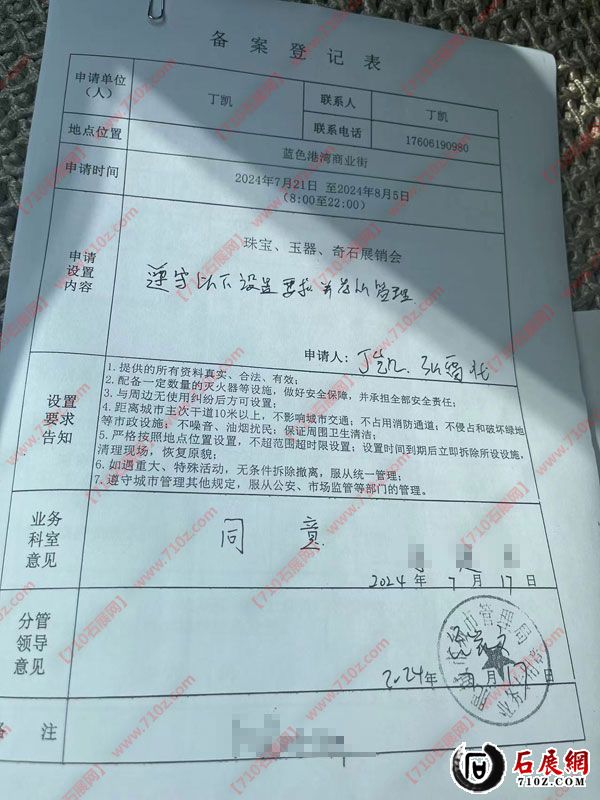 备案登记表
申请单位（人） 丁凯 联系人 丁凯
联系电话 17606190980
地点位置 蓝色港湾商业街
申请时间 2024年7月21日 至2024年8月5日
（8:00至22:00）
申请设置内容
珠宝、玉器、奇石展销会
遵守以下设置要求并落从管理
申请人：丁凯
设置要求告知
1. 提供的所有资料真实、合法、有效；
2. 配备一定数量的灭火器等设施，做好安全保障，并承担全部安全责任；
3. 与周边无使用纠纷后方可设置；
4. 距离城市主次干道10米以上，不影响城市交通；不占用消防通道；不侵占和破坏绿地
等市政设施；不噪音、油烟扰民；保证周围卫生清洁；
5. 严格按照地点位置设置，不超范围超时限设置；设置时间到期后立即拆除所设设施，
清理现场，恢复原貌；
6. 如遇重大、特殊活动，无条件拆除撤离，服从统一管理；
7. 遵守城市管理其他规定，服从公安、市场监管等部门的管理。
业务科室意见
同意
2024年7月17日
分管领导意见
市管理局
2024年 月17日
备注
【710石展网】www.710z.com
石展網
710Z.COM